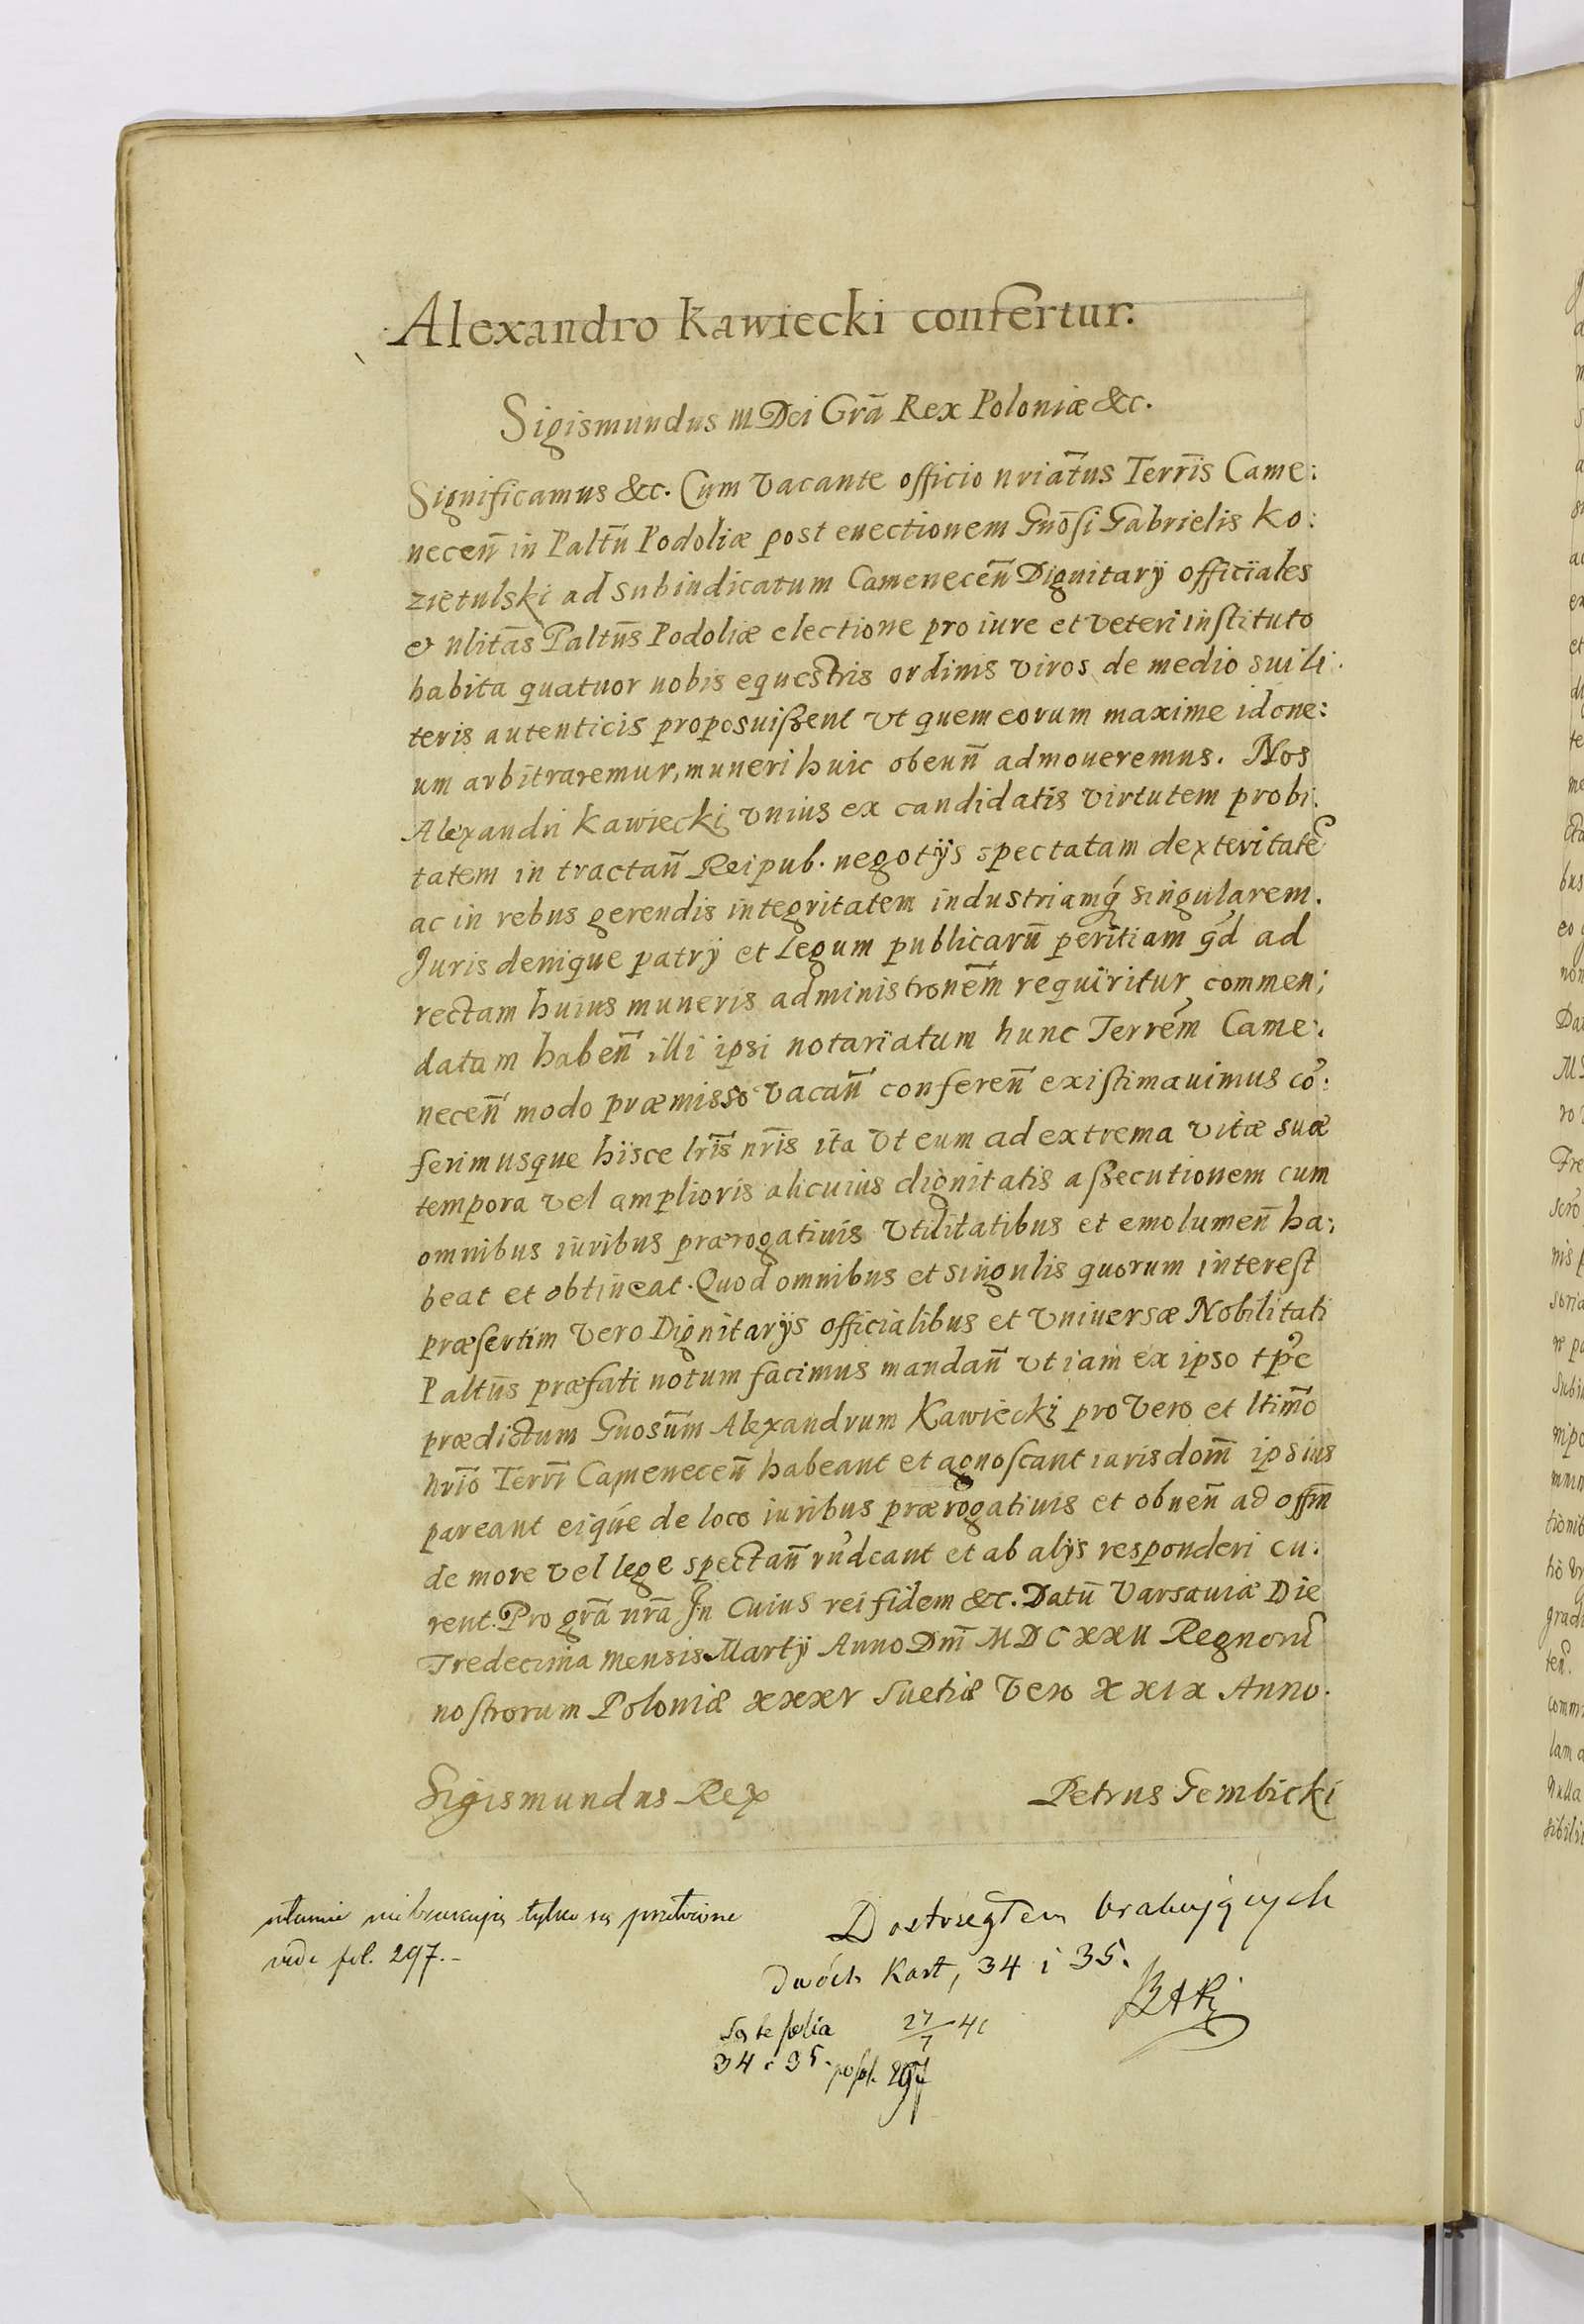 Alexandro Kawiecki confertur.
Sigismundus III Dei Grã Rex Poloniæ &c.
Significamus &c. Cum vacante officio nriat̃us Terr̃is Came:
necen̄ in Palt̃n Podoliæ post euectionem Gnõsi Gabrielis Ko:
zietulski ad subiudicatum Camenecen̄ Dignitarÿ officiales
& nlitãs Palt̃ns Podoliæ electione pro iure et veteri instituto
habita quatuor nobis equestris ordinis viros de medio sui li:
teris autenticis proposuissent vt quem eorum maxime idone:
um arbitraremur, muneri huic obeun̄ admoueremus. Nos
Alexandri Kawiecki vnius ex candidatis virtutem probi:
tatem in tractan̄ Reipub. negotÿs spectatam dexteritatẽ
ac in rebus gerendis integritatem industriamq́ singularem.
Juris denique patrÿ et legum publicarũ peritiam q́d ad
rectam huius muneris administronem̃ requiritur commen:
datam haben̄ illi ipsi notariatum hunc Terrẽm Came:
necen̄ modo præmisso vacan̄ conferen̄ existimauimus cõ:
ferimusque hisce lr̃is nr̃is ita vt eum ad extrema vitæ suæ
tempora vel amplioris alicuius dignitatis assecutionem cum
omnibus iuribus prærogatiuis vtilitatibus et emolumen̄ ha:
beat et obtineat. Quod omnibus et singulis quorum interest
præsertim vero Dignitarÿs officialibus et vniuersæ Nobilitati
Palt̃ns præfati notum facimus mandan̄ vt iam ex ipso tp̃e
prædictum Gnosũm Alexandrum Kawiecki pro vero et ltim̃o
nrĩo Terr̃i Camenecen̄ habeant et agnoscant iurisdom̃ ipsius
pareant eiq́ue de loco iuribus prærogatiuis et obuen̄ ad offm̃
de more vel lege spectan̄ rñdeant et ab alÿs responderi cu:
rent. Pro grã nrã In cuius rei fidem &c. Datũ Varsauiæ Die
Tredecima mensis Martÿ Anno Dnĩ MDCXXII Regnorũ
nostrorum Poloniæ XXXV Suetiæ vero XXIX Anno.
Sigismundus Rex Petrus Gembicki
nie brakują tylko są
vide fol. 297.-
Dostrzegłem brakujących
dwóch kart, 34 i 35.
Są te folia
34 i 35. po fol. 297
27/7 41